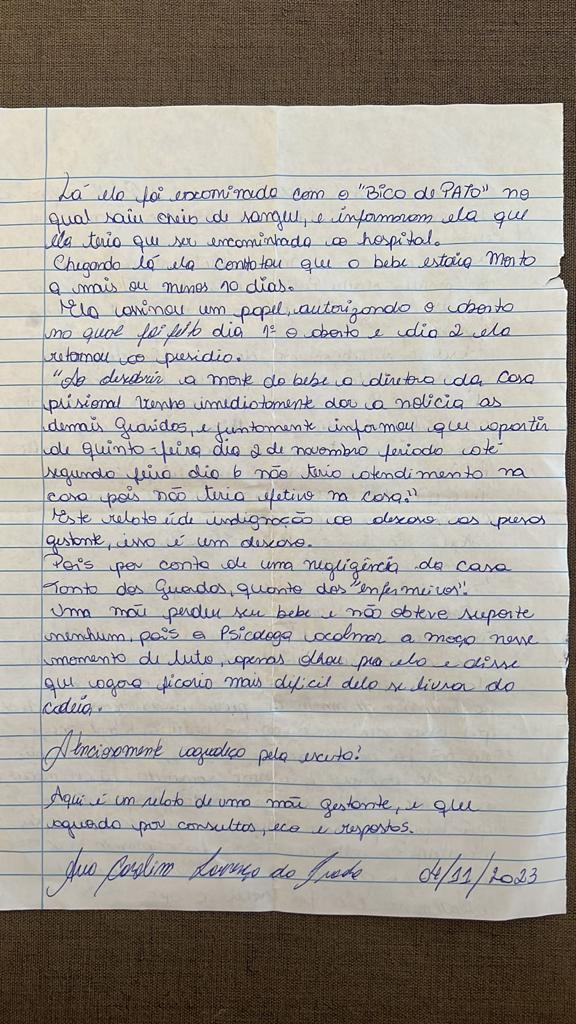 Lá ela foi encaminhada com o "BICO de PATO" no
qual saiu cheio de sangue, e informaram ela que
ela teria que ser encaminhada ao hospital.
Chegando lá ela constatou que o bebe estava morto
a mais ou menos 10 dias.
Ela assinou um papel, autorizando o aborto
no qual foi feito dia 1º o aborto e dia 2 ela
retornou ao presidio.
"Ao descobrir a morte do bebe a diretora da casa
prisional venho imediatamente dar a noticia as
demais Gravidas, e juntamente informou que apartir
de quinta-feira dia 2 de novembro feriado até
segunda feira dia 6 não teria atendimento na
casa pois não teria efetivo na casa."
Este relato é de indignação ao descaso as presas
gestante, isso é um descaso.
Pois por conta de uma negligência da casa
Tanto dos Guardas, quanto dos "enfermeiros".
Uma mãe perdeu seu bebe e não obteve suporte
nenhum, pois a Psicologa acalmar a moça nesse
momento de luto, apenas olhou pra ela e disse
que agora ficaria mais dificil dela se livrar da
cadeia.
Atenciosamente pela escuta!
Aqui é um relato de uma mãe gestante, e que
aguarda por consultas, eco e respostas.
Ana Carolin Lourenço do Prado 04/11/2023